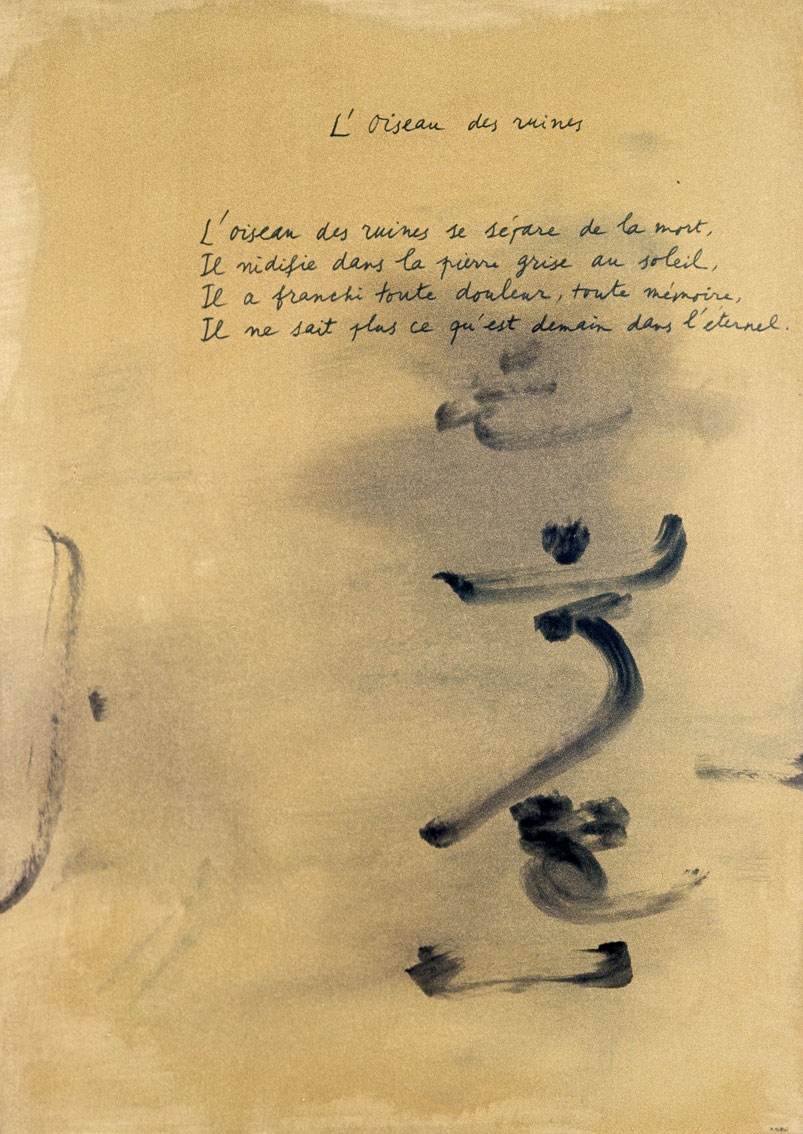 L'oiseau des ruines
L'oiseau des ruines se sépare de la mort,
Il nidifie dans la pierre grise au soleil,
Il a franchi toute douleur, toute mémoire,
Il ne sait plus ce qu'est demain dans l'éternel.